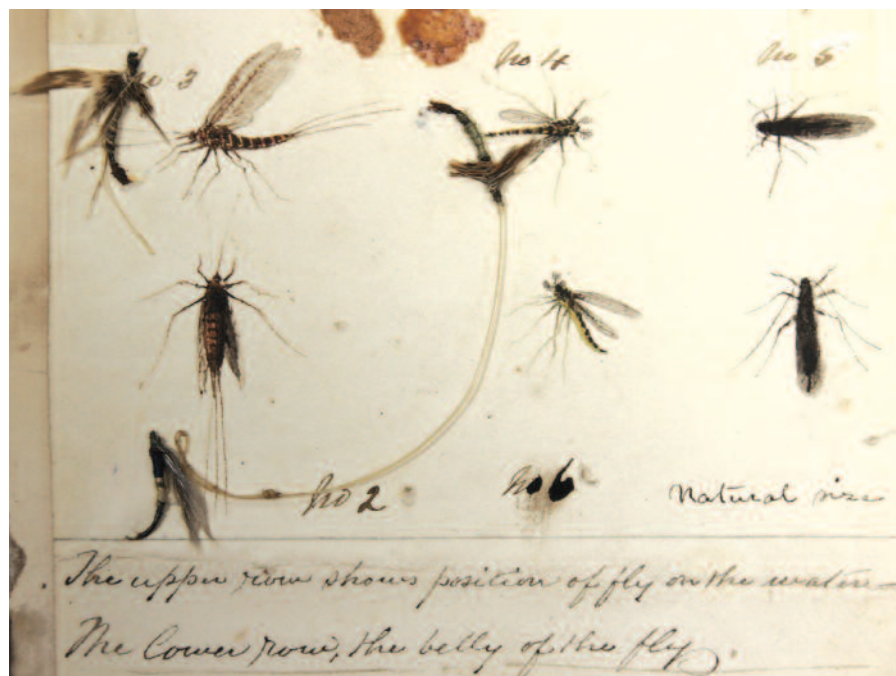 no 3
no 4
no 5
no 2
no 6
Natural size
The upper row shows position of fly on the water
The Lower row, the belly of the fly.